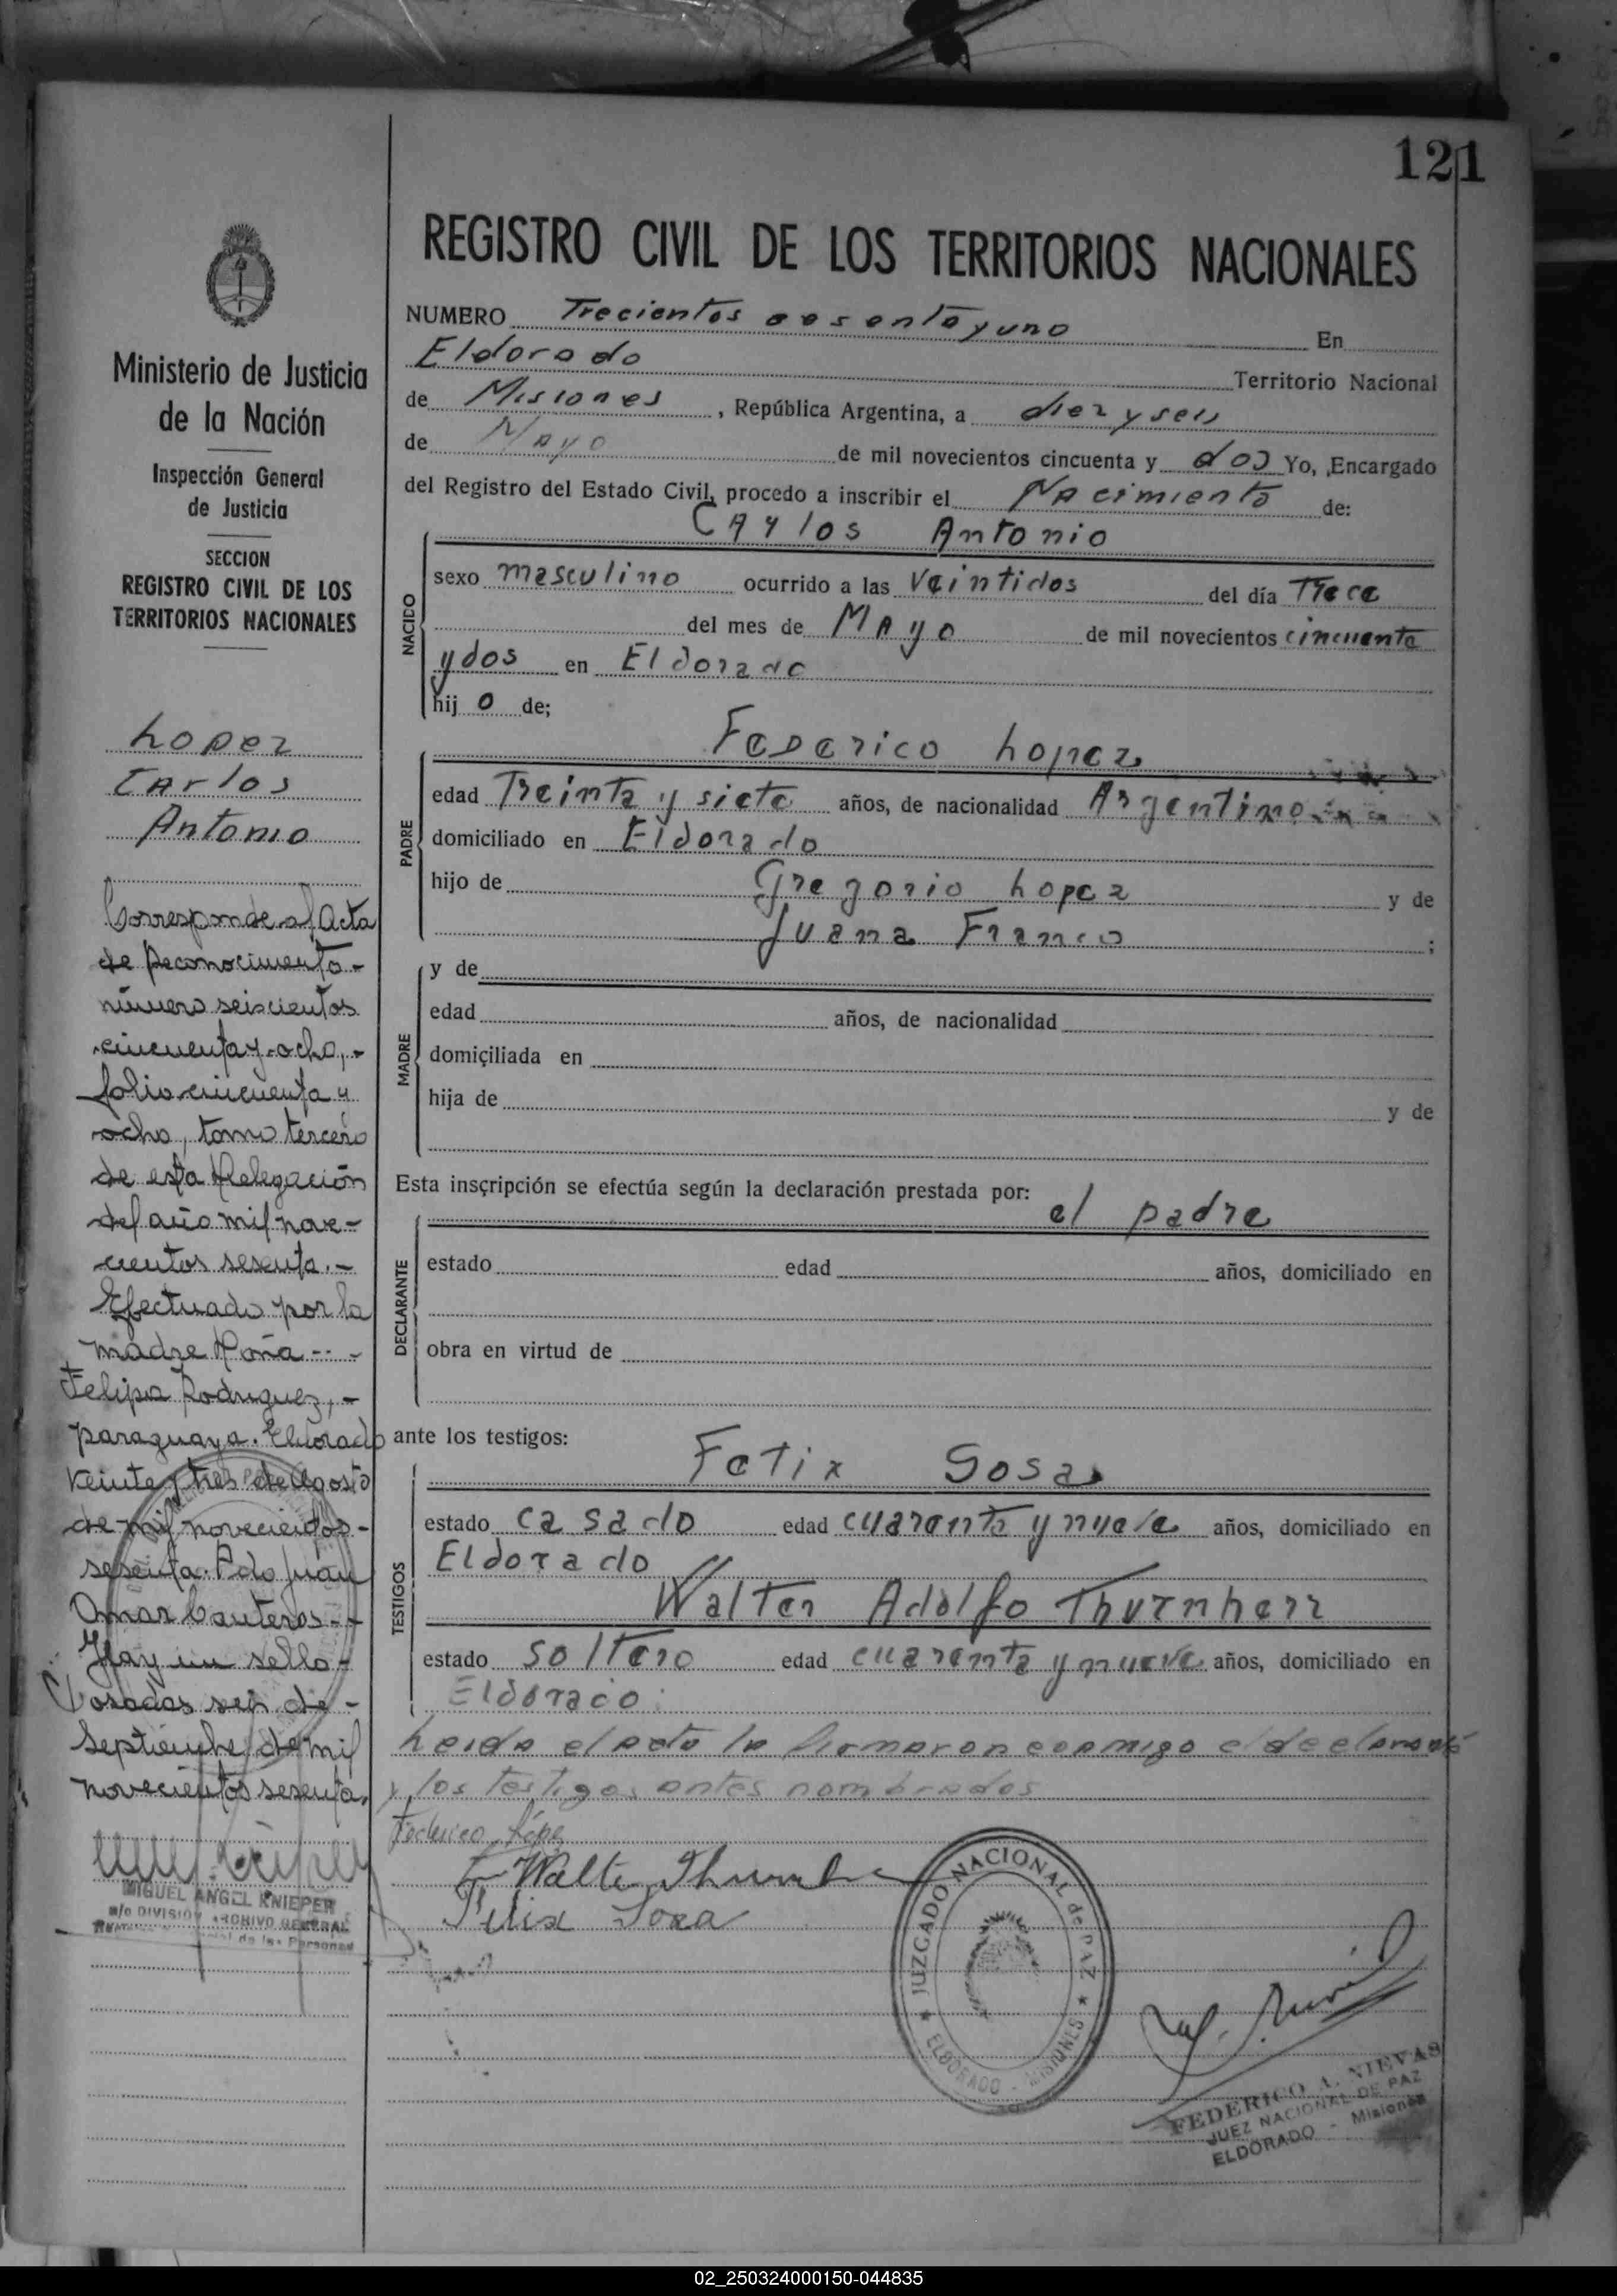 121
REGISTRO CIVIL DE LOS TERRITORIOS NACIONALES
NUMERO Trecientos sesenta y uno En
Eldorado Territorio Nacional
de Misiones, República Argentina, a diez y seis
de Mayo de mil novecientos cincuenta y dos Yo, Encargado
del Registro del Estado Civil, procedo a inscribir el Nacimiento de:
NACIDO
Carlos Antonio
sexo masculino ocurrido a las veintidos del día Trece
del mes de Mayo de mil novecientos cincuenta
y dos en Eldorado
hij o de;
PADRE
Federico Lopez
edad Treinta y siete años, de nacionalidad Argentino
domiciliado en Eldorado
hijo de Gregorio Lopez y de
Juana Franco ;
MADRE
y de
edad años, de nacionalidad
domiçiliada en
hija de y de
Esta insçripción se efectúa según la declaración prestada por:
DECLARANTE
el padre
estado edad años, domiciliado en
obra en virtud de
ante los testigos:
TESTIGOS
Felix Sosa
estado casado edad cuarenta y nueve años, domiciliado en
Eldorado
Walter Adolfo Thurnherr
estado soltero edad cuarenta y nueve años, domiciliado en
Eldorado.
Leida el acta la firmaron conmigo el declarante
y los testigos antes nombrados
Federico López
Walter Thurnherr
Felix Sosa
JUZGADO NACIONAL de PAZ
ELDORADO - MISIONES
FEDERICO A. NIEVAS
JUEZ NACIONAL DE PAZ
ELDORADO - Misiones
Ministerio de Justicia
de la Nación
Inspección General
de Justicia
SECCION
REGISTRO CIVIL DE LOS
TERRITORIOS NACIONALES
Lopez
Carlos
Antonio
Corresponde al Acta
de Reconocimiento-
número seiscientos
cincuenta y ocho,-
folio cincuenta y
ocho, tomo tercero
de esta Delegación
del año mil nove-
cientos sesenta.-
Efectuado por la
madre Doña -- -
Felipa Rodriguez,-
paraguaya. Eldorado
veinte y tres de Agosto
de mil novecientos-
sesenta. Fdo Juan
Omar Cauteros--
Hay un sello-
Posadas seis de-
Septiembre de mil
novecientos sesenta.
MIGUEL ANGEL KNIEPER
a/c DIVISION ARCHIVO GENERAL
de las Personas
02_250324000150-044835